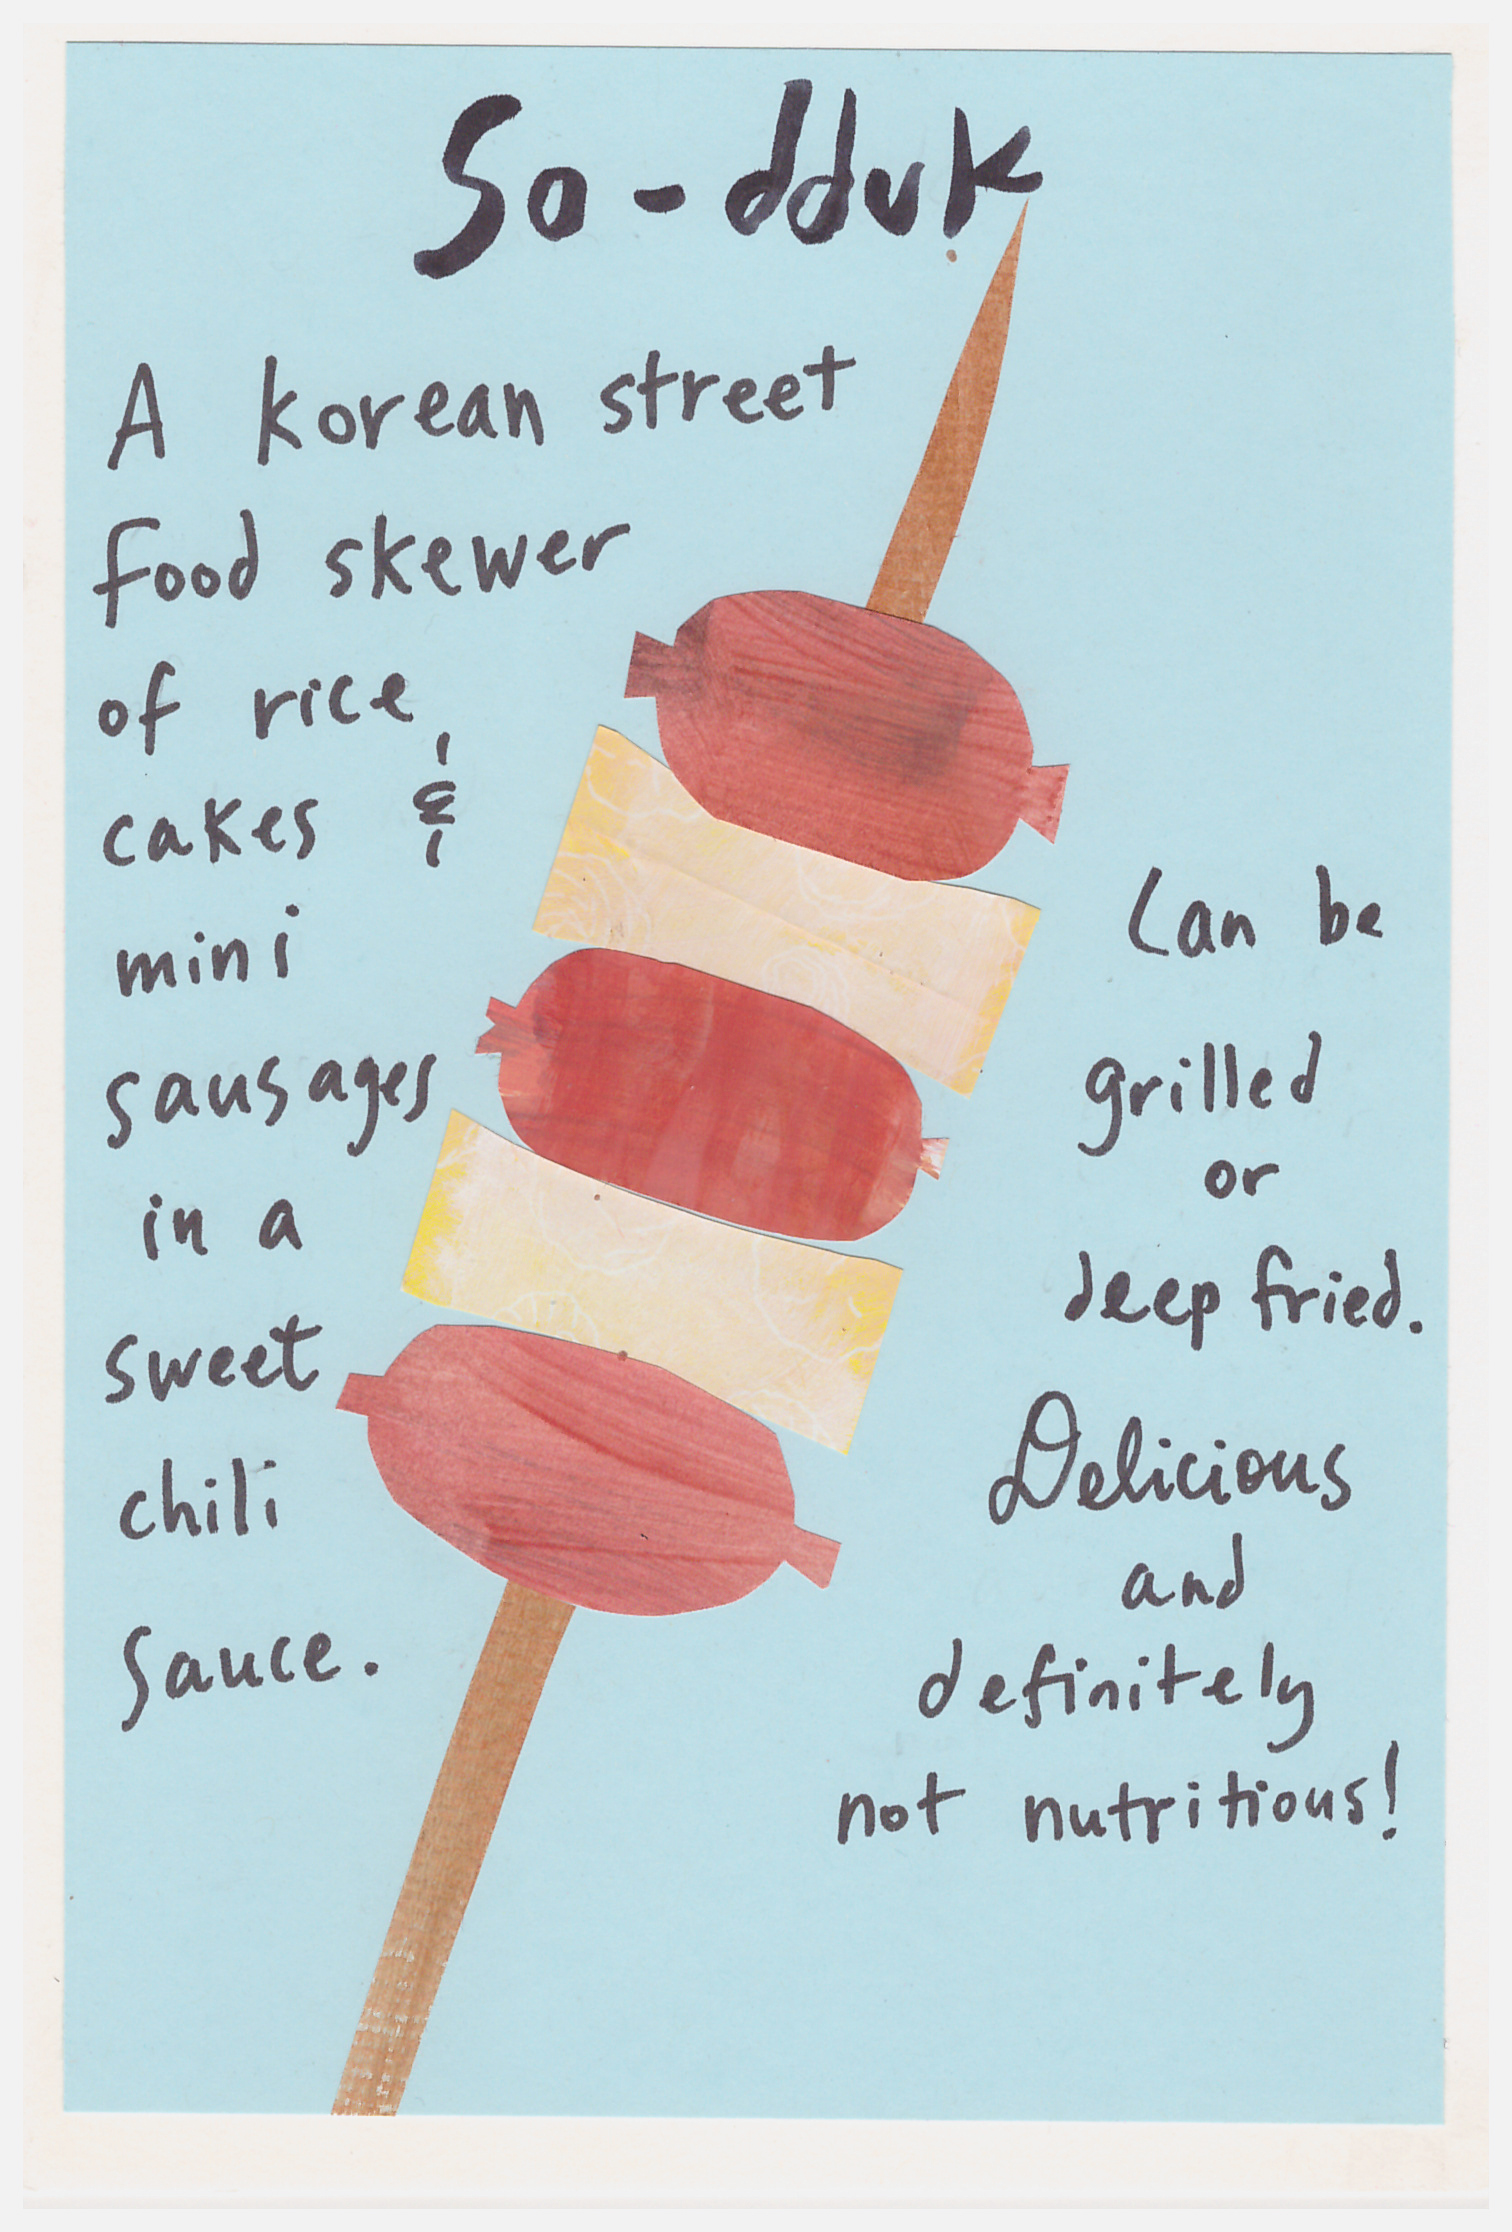 So-dduk
A korean street
food skewer
of rice
cakes &
mini
sausages
in a
sweet
chili
Sauce.
Can be
grilled
or
deep fried.
Delicious
and
definitely
not nutritious!